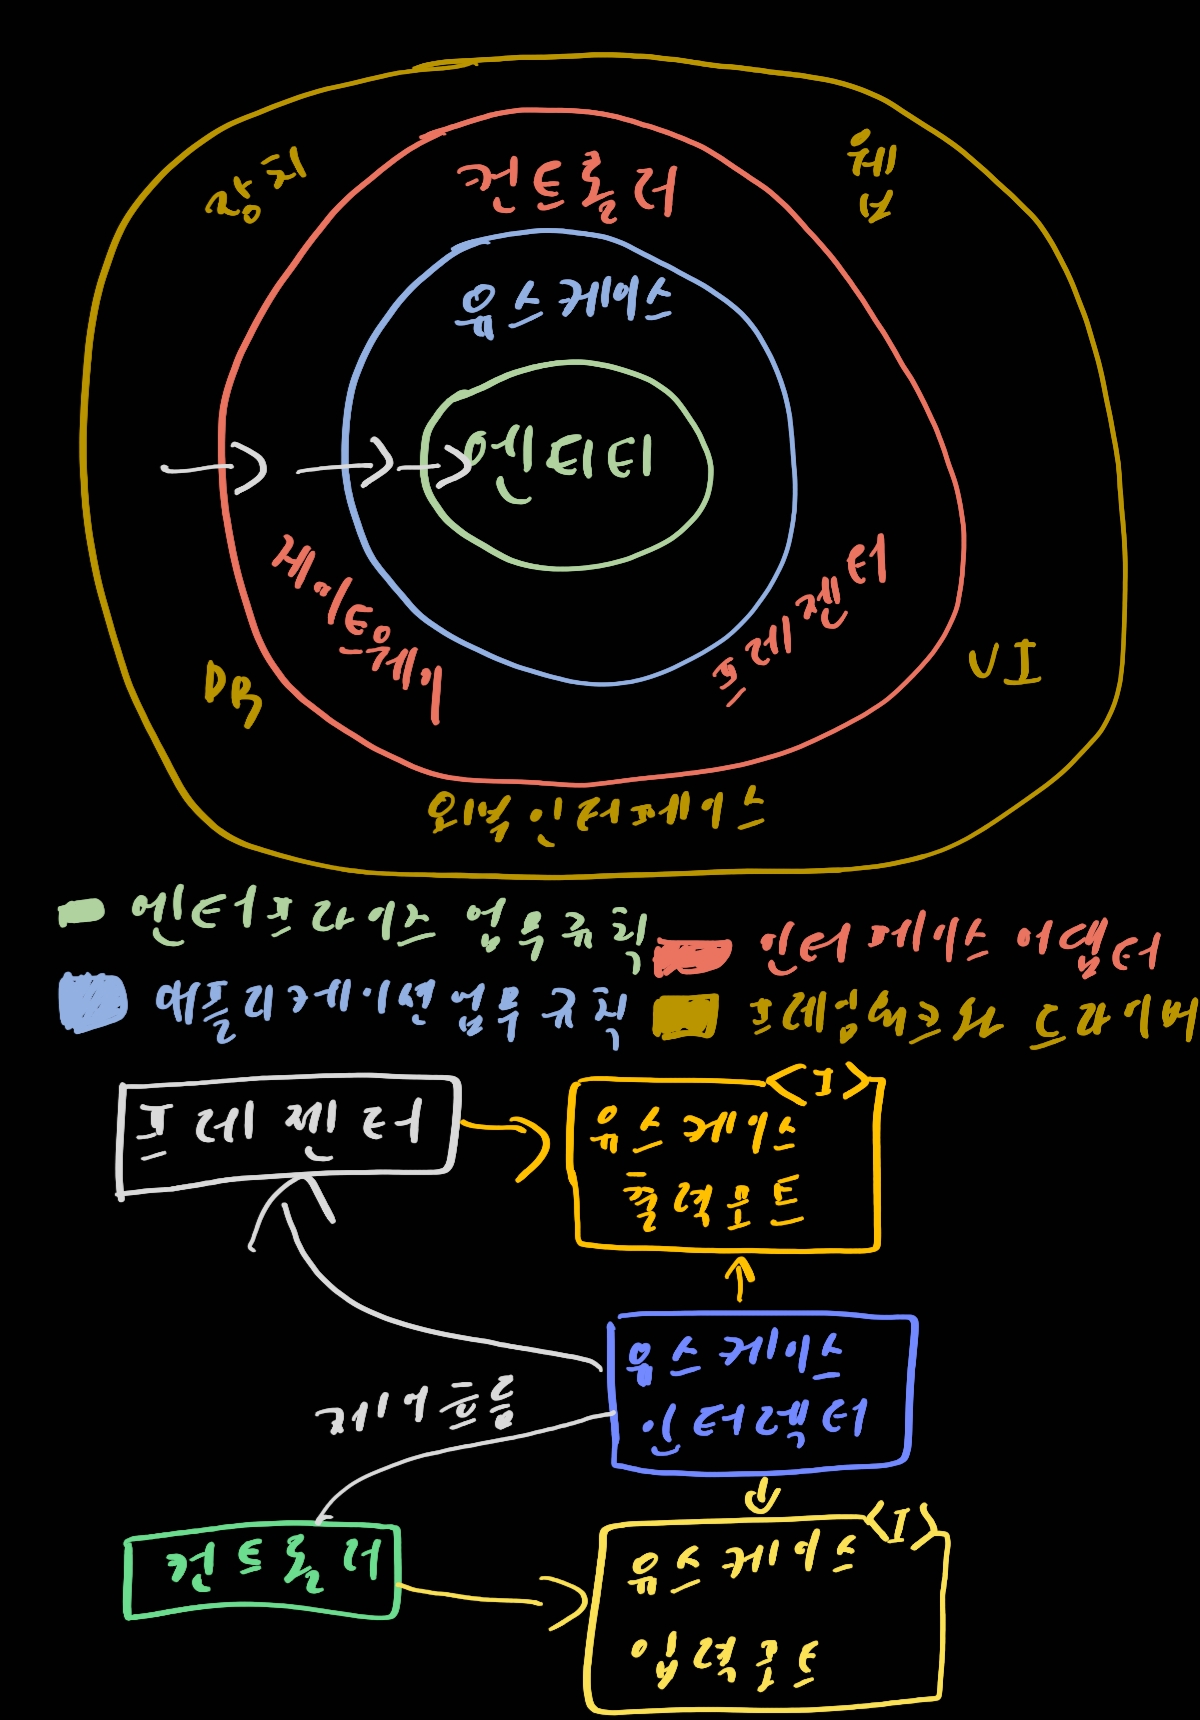 장치
웹
컨트롤러
유스케이스
엔티티
게이트웨이
프레젠터
DB
UI
외부 인터페이스
엔터프라이즈 업무규칙
인터페이스 어댑터
애플리케이션 업무 규칙
프레임워크와 드라이버
프레젠터
<I>
유스케이스
출력포트
유스케이스
인터렉터
제어흐름
컨트롤러
<I>
유스케이스
입력포트